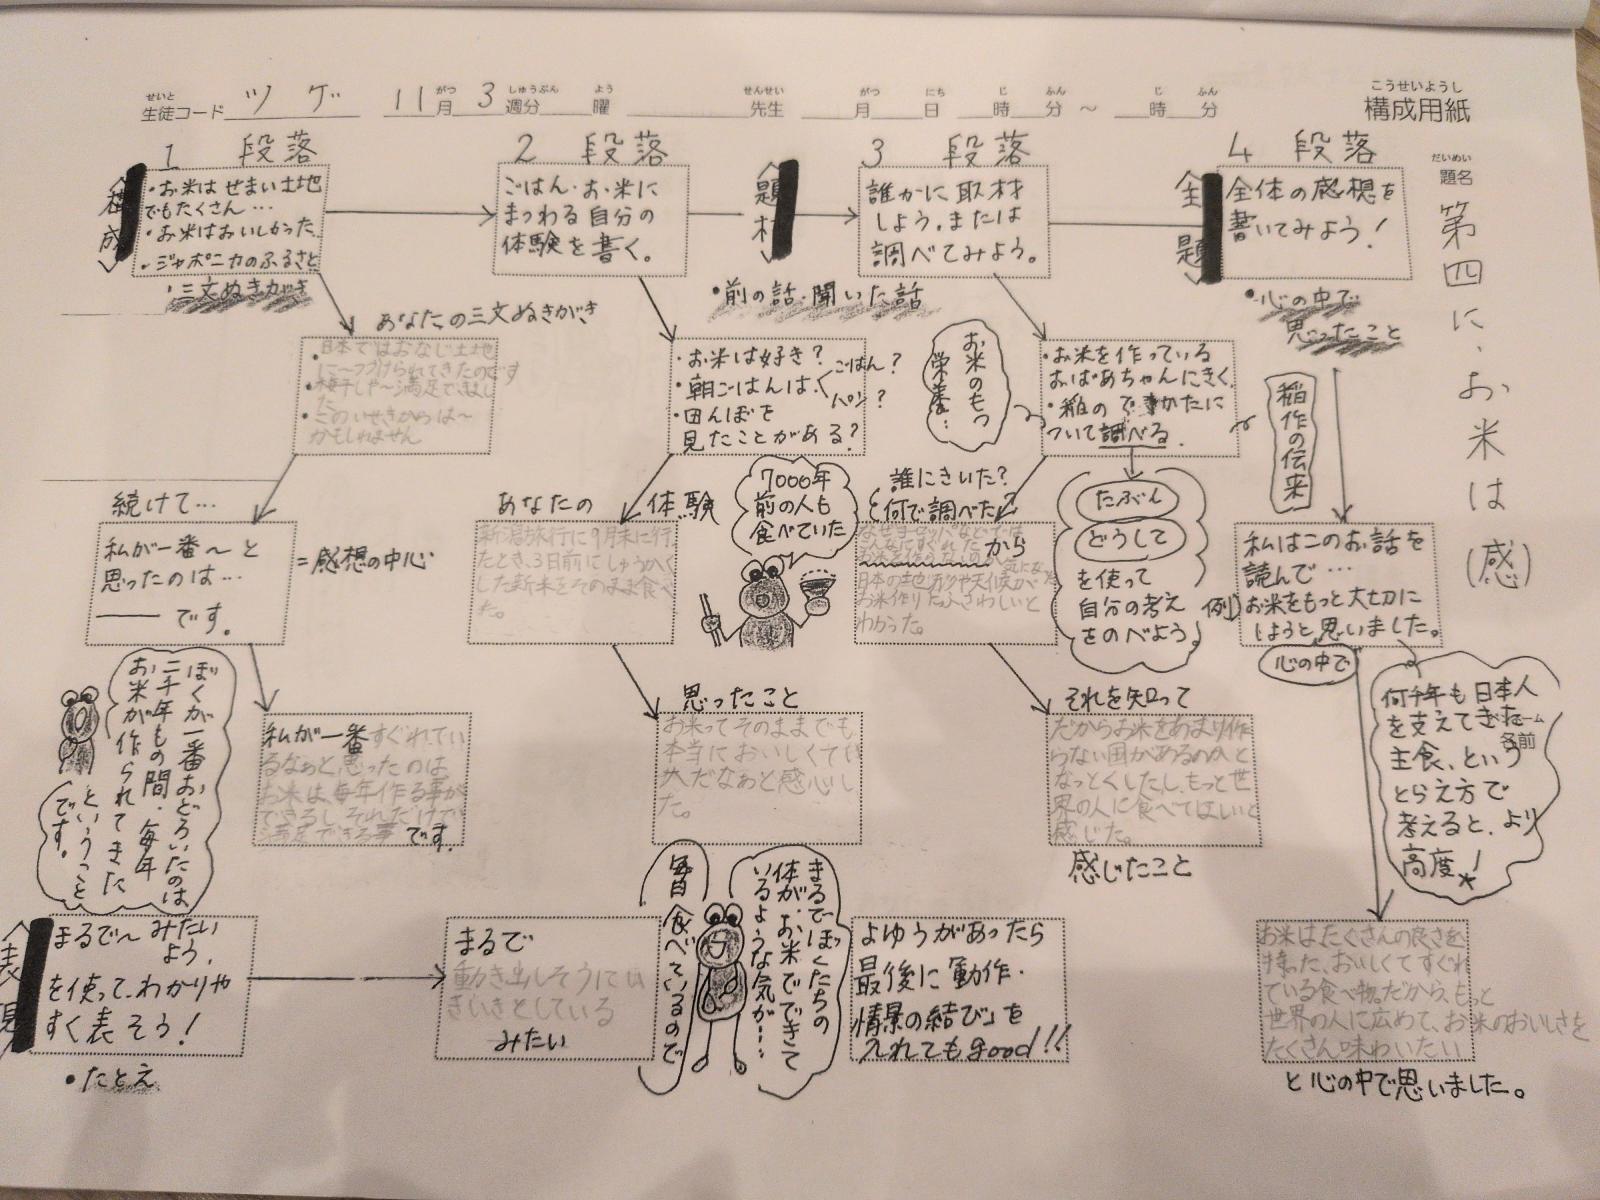 生徒コード ツゲ 11月 3週分 曜 先生 月 日 時 分 ～ 時 分
構成用紙
題名
第四に、お米は(感)
1 段落
・お米はせまい土地
でもたくさん…
・お米はおいしかった
・ジャポニカのふるさと
・三文ぬきがき
あなたの三文ぬきがき
・日本ではおなじ土地
に～つづけられてきたのです
・梅干しや～満足できまし
た
・このいせきからは～
かもしれません
続けて…
私が一番～と
思ったのは…
―― です。
=感想の中心
ぼくが一番おどろいたのは
二千年もの間、毎年
お米が作られてきた
ということ
です。
私が一番すぐれてい
るなぁと思ったのは
お米は、毎年作る事が
できるし、それだけで
満足できる事です。
表現
まるで～みたい
よう、
を使って、わかりや
すく表そう！
・たとえ
まるで
動き出しそうにい
きいきとしている
みたい
2 段落
ごはん・お米に
まつわる自分の
体験を書く。
・お米は好き？
・朝ごはんは、ごはん？
パン？
・田んぼを
見たことがある？
あなたの 体験
新潟旅行に9月末に行っ
たとき、3日前にしゅうかく
した新米をそのまま食べ
た。
7000年
前の人も
食べていた
思ったこと
お米ってそのままでも
本当においしくて
だなぁと感心し
た。
毎日食べているので
まるでぼくたちの
体が、お米でできて
いるような気が…
題材
3 段落
誰かに取材
しよう。または
調べてみよう。
・前の話・聞いた話
お米のもつ
栄養…
・お米を作っている
おばあちゃんにきく
・稲のでかたに
ついて調べる。
稲作の伝来
誰にきいた？
何で調べた？
なぜヨーロッパなどでは
から
気になった
日本の地形や天候が
お米作りにふさわしいと
わかった。
たぶん
どうして
を使って
自分の考え
をのべよう。
それを知って
だからお米をあまり作
らない国があるのかと
なっとくしたし、もっと世
界の人に食べてほしいと
感じた。
感じたこと
よゆうがあったら
最後に動作・
情景の結び」を
入れてもgood!!
主題
4 段落
全体の感想を
書いてみよう！
・心の中で
思ったこと
例)
私はこのお話を
読んで…
お米をもっと大切に
しようと思いました。
心の中で
何千年も日本人
を支えてきた
主食、という
とらえ方で
考えると、より
高度！
名前
お米はたくさんの良さを
持った、おいしくてすぐれ
ている食べ物。だから、もっと
世界の人に広めて、お米のおいしさを
たくさん味わいたい
と心の中で思いました。